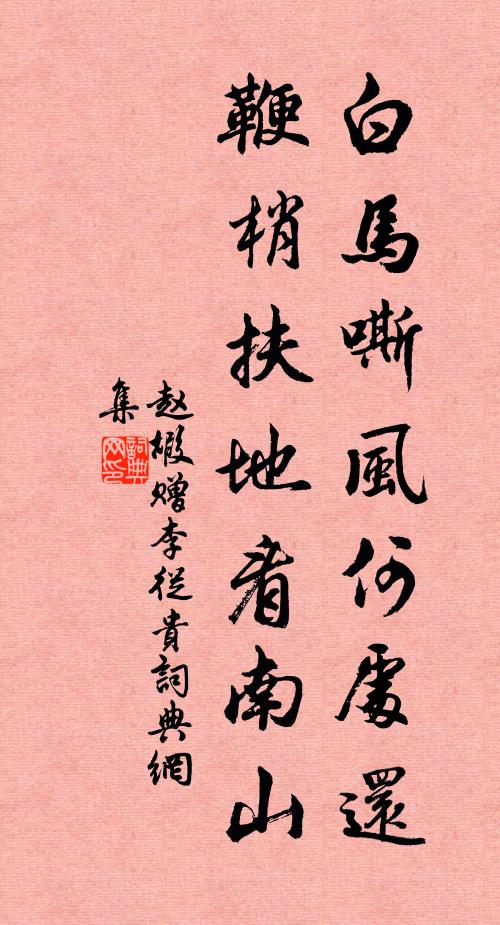 白馬嘶風何處還
鞭梢扶地看南山
赵嘏赠李從貴詞典網
集
詞典
网印